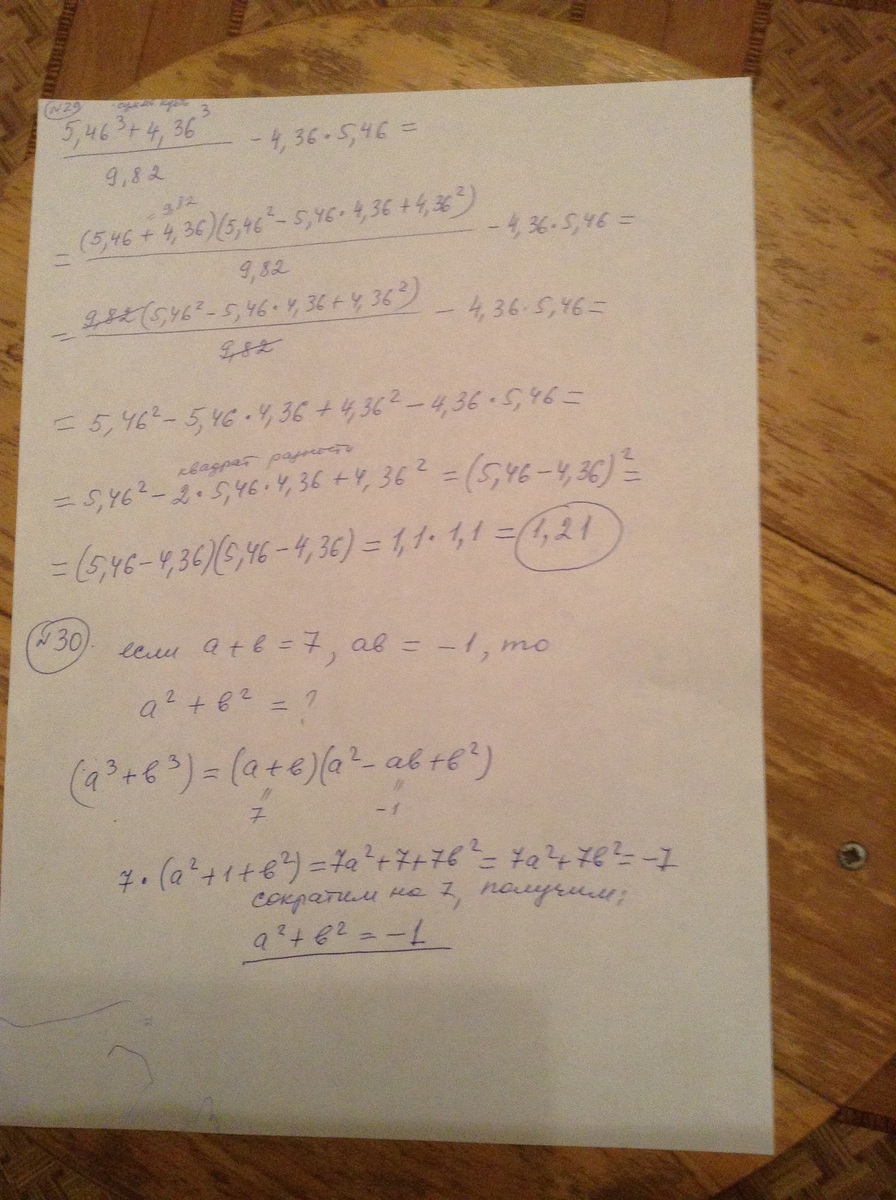 №29
5,46³ + 4,36³ / 9,82 - 4,36 · 5,46 =
= 9,82
= (5,46 + 4,36)(5,46² - 5,46 · 4,36 + 4,36²) / 9,82 - 4,36 · 5,46 =
= 9,82 (5,46² - 5,46 · 4,36 + 4,36²) / 9,82 - 4,36 · 5,46 =
= 5,46² - 5,46 · 4,36 + 4,36² - 4,36 · 5,46 =
квадрат разности
= 5,46² - 2 · 5,46 · 4,36 + 4,36² = (5,46 - 4,36)² =
= (5,46 - 4,36)(5,46 - 4,36) = 1,1 · 1,1 = 1,21
№30. если a + в = 7, aв = -1, то
a² + в² = ?
(a³ + в³) = (a + в)(a² - aв + в²)
= 7 = -1
7 · (a² + 1 + в²) = 7a² + 7 + 7в² = 7a² + 7в² = -7
сократим на 7, получим:
a² + в² = -1